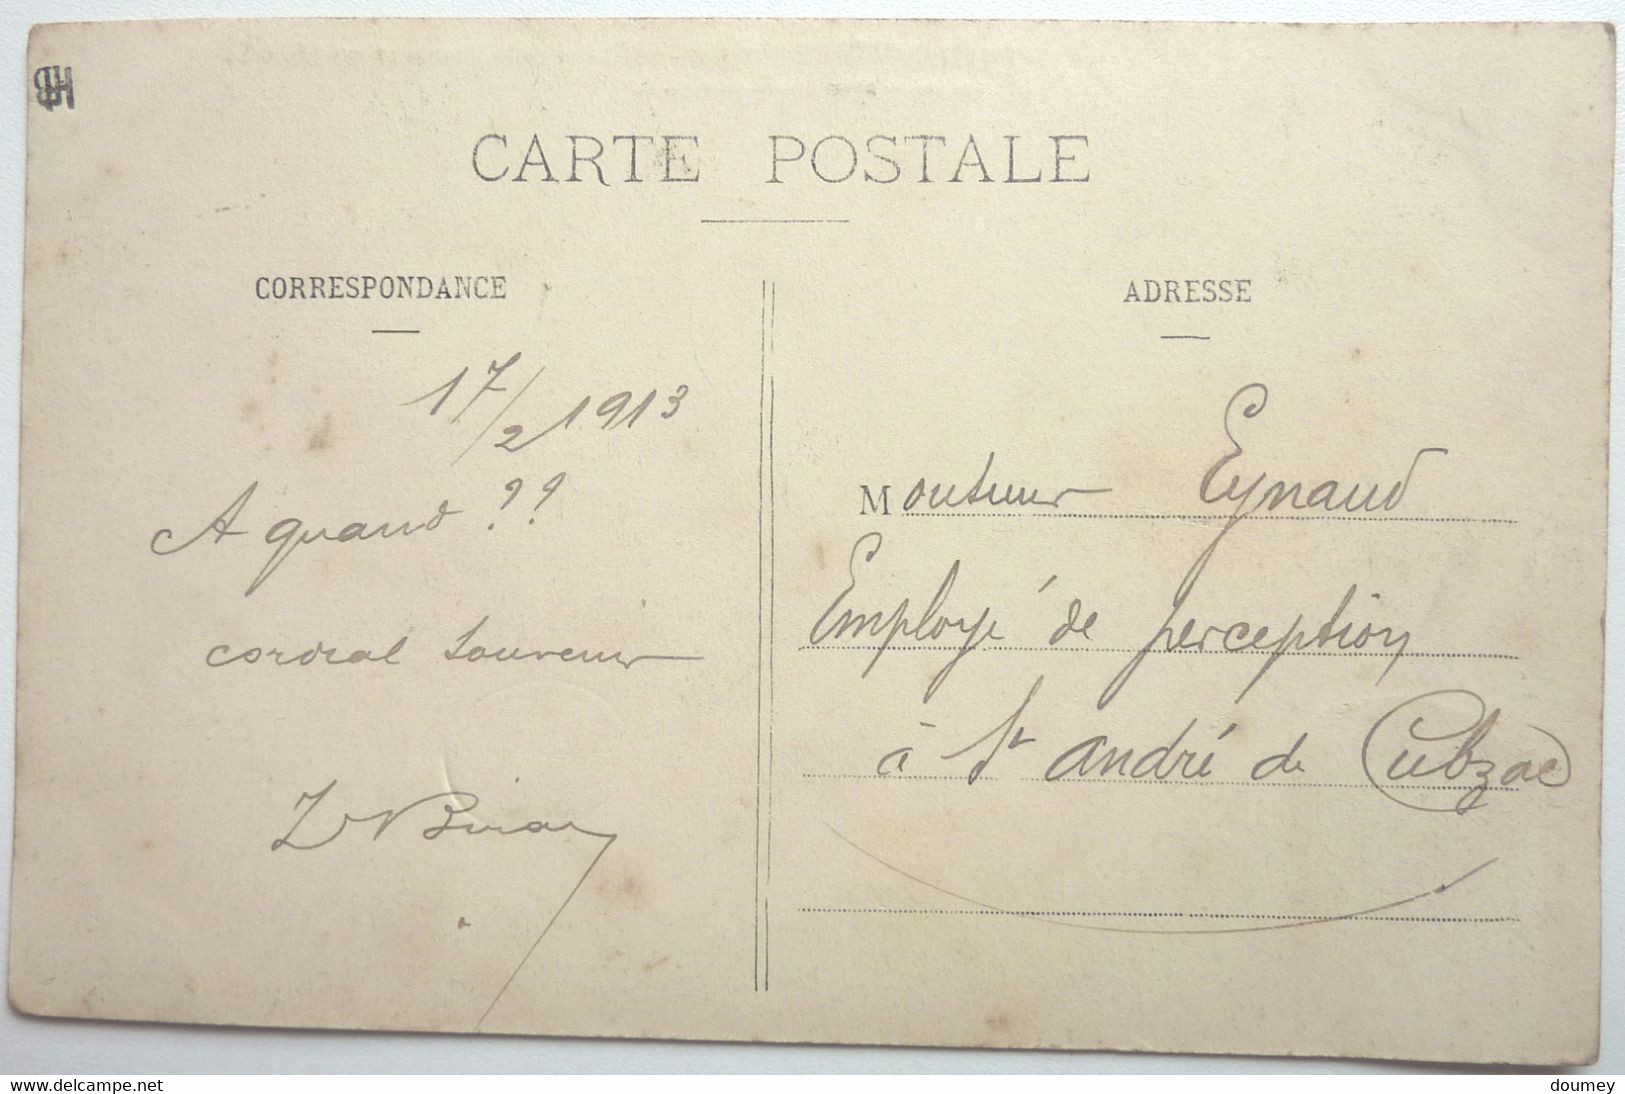 CARTE POSTALE
CORRESPONDANCE
17/2 1913
A quand ??
cordial souvenir
ADRESSE
Monsieur Eynaud
Employé de perception
à St André de Cubzac
www.delcampe.net
doumey